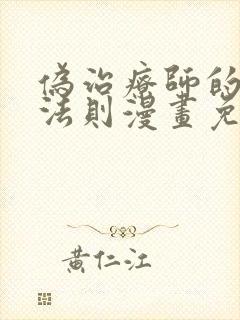 偽治療師的
法則漫畫免
黃仁江